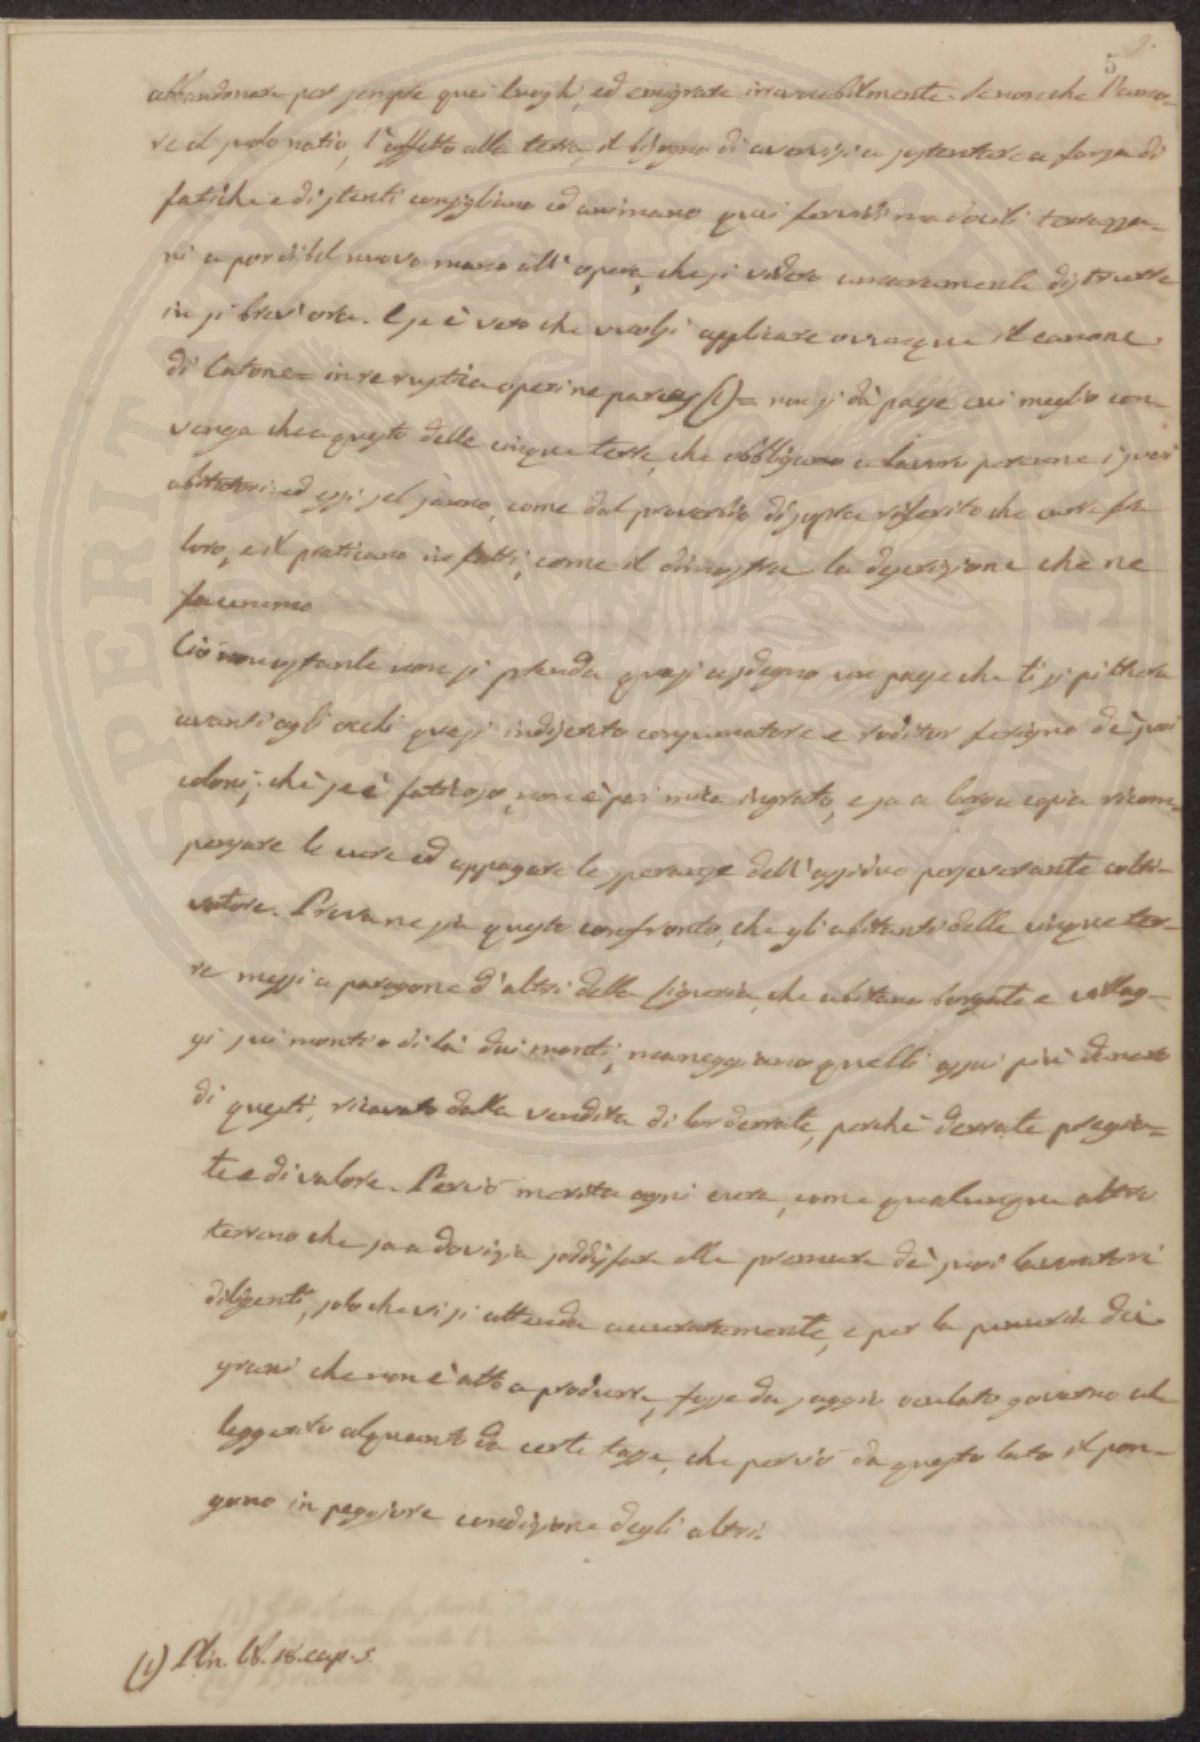 5 9.
abbandonare per sempre quei luoghi, ed emigrare irrevocabilmente. Se non che l'amo-
re al suolo natio, l'affetto alla terra, il bisogno di aversi a sostentare a forza di
fatiche e di stenti consigliano ed animano quei fortissimi docili terrazza-
ni a por di bel nuovo mano all'opera, che si videro amaramente distrurre
in sì brevi ore. E se è vero che vuolsi applicare ovunque il canone
di Catone = in re rustica operi ne parcas (1) = non si dà paese cui meglio con-
venga che a questo delle cinque terre, che obbligano a lavoro perenne i suoi
abitatori: ed essi sel sanno, come dal proverbio di sopra riferito che corre fra
loro, e il praticano in fatti, come il dimostra la descrizione che ne
facemmo
Ciò nonostante non si prenda quasi a sdegno un paese che ti si pittura
avanti agli occhi quasi indiscreto consumatore e roditor ferigno de' suoi
coloni; chè se è faticoso, non è poi mica ingrato, e sa a larga copia ricom-
pensare le cure ed appagare le speranze dell'assiduo perseverante colti-
vatore. Prova ne sia questo confronto, che gli abitanti delle cinque ter-
re messi a paragone d'altri della Liguria, che abitano borgate e villag-
gi sui monti o di là dai monti, maneggiano quelli assai più denaro
di questi, ricavato dalla vendita di lor derrate, perchè derrate pregia-
te e di valore. Perciò merita ogni cura, come qualunque altro
terreno che sa a dovizia soddisfare alle premure de' suoi lavoratori
diligenti, solo che vi si attenda accuratamente, e per la penuria dei
grani che non è atto a produrre, fosse da saggio oculato governo al-
leggerito alquanto da certe tasse, che perciò da questo lato il pon-
gono in peggiore condizione degli altri.
(1) Plin. lib. 18. cap. 5.